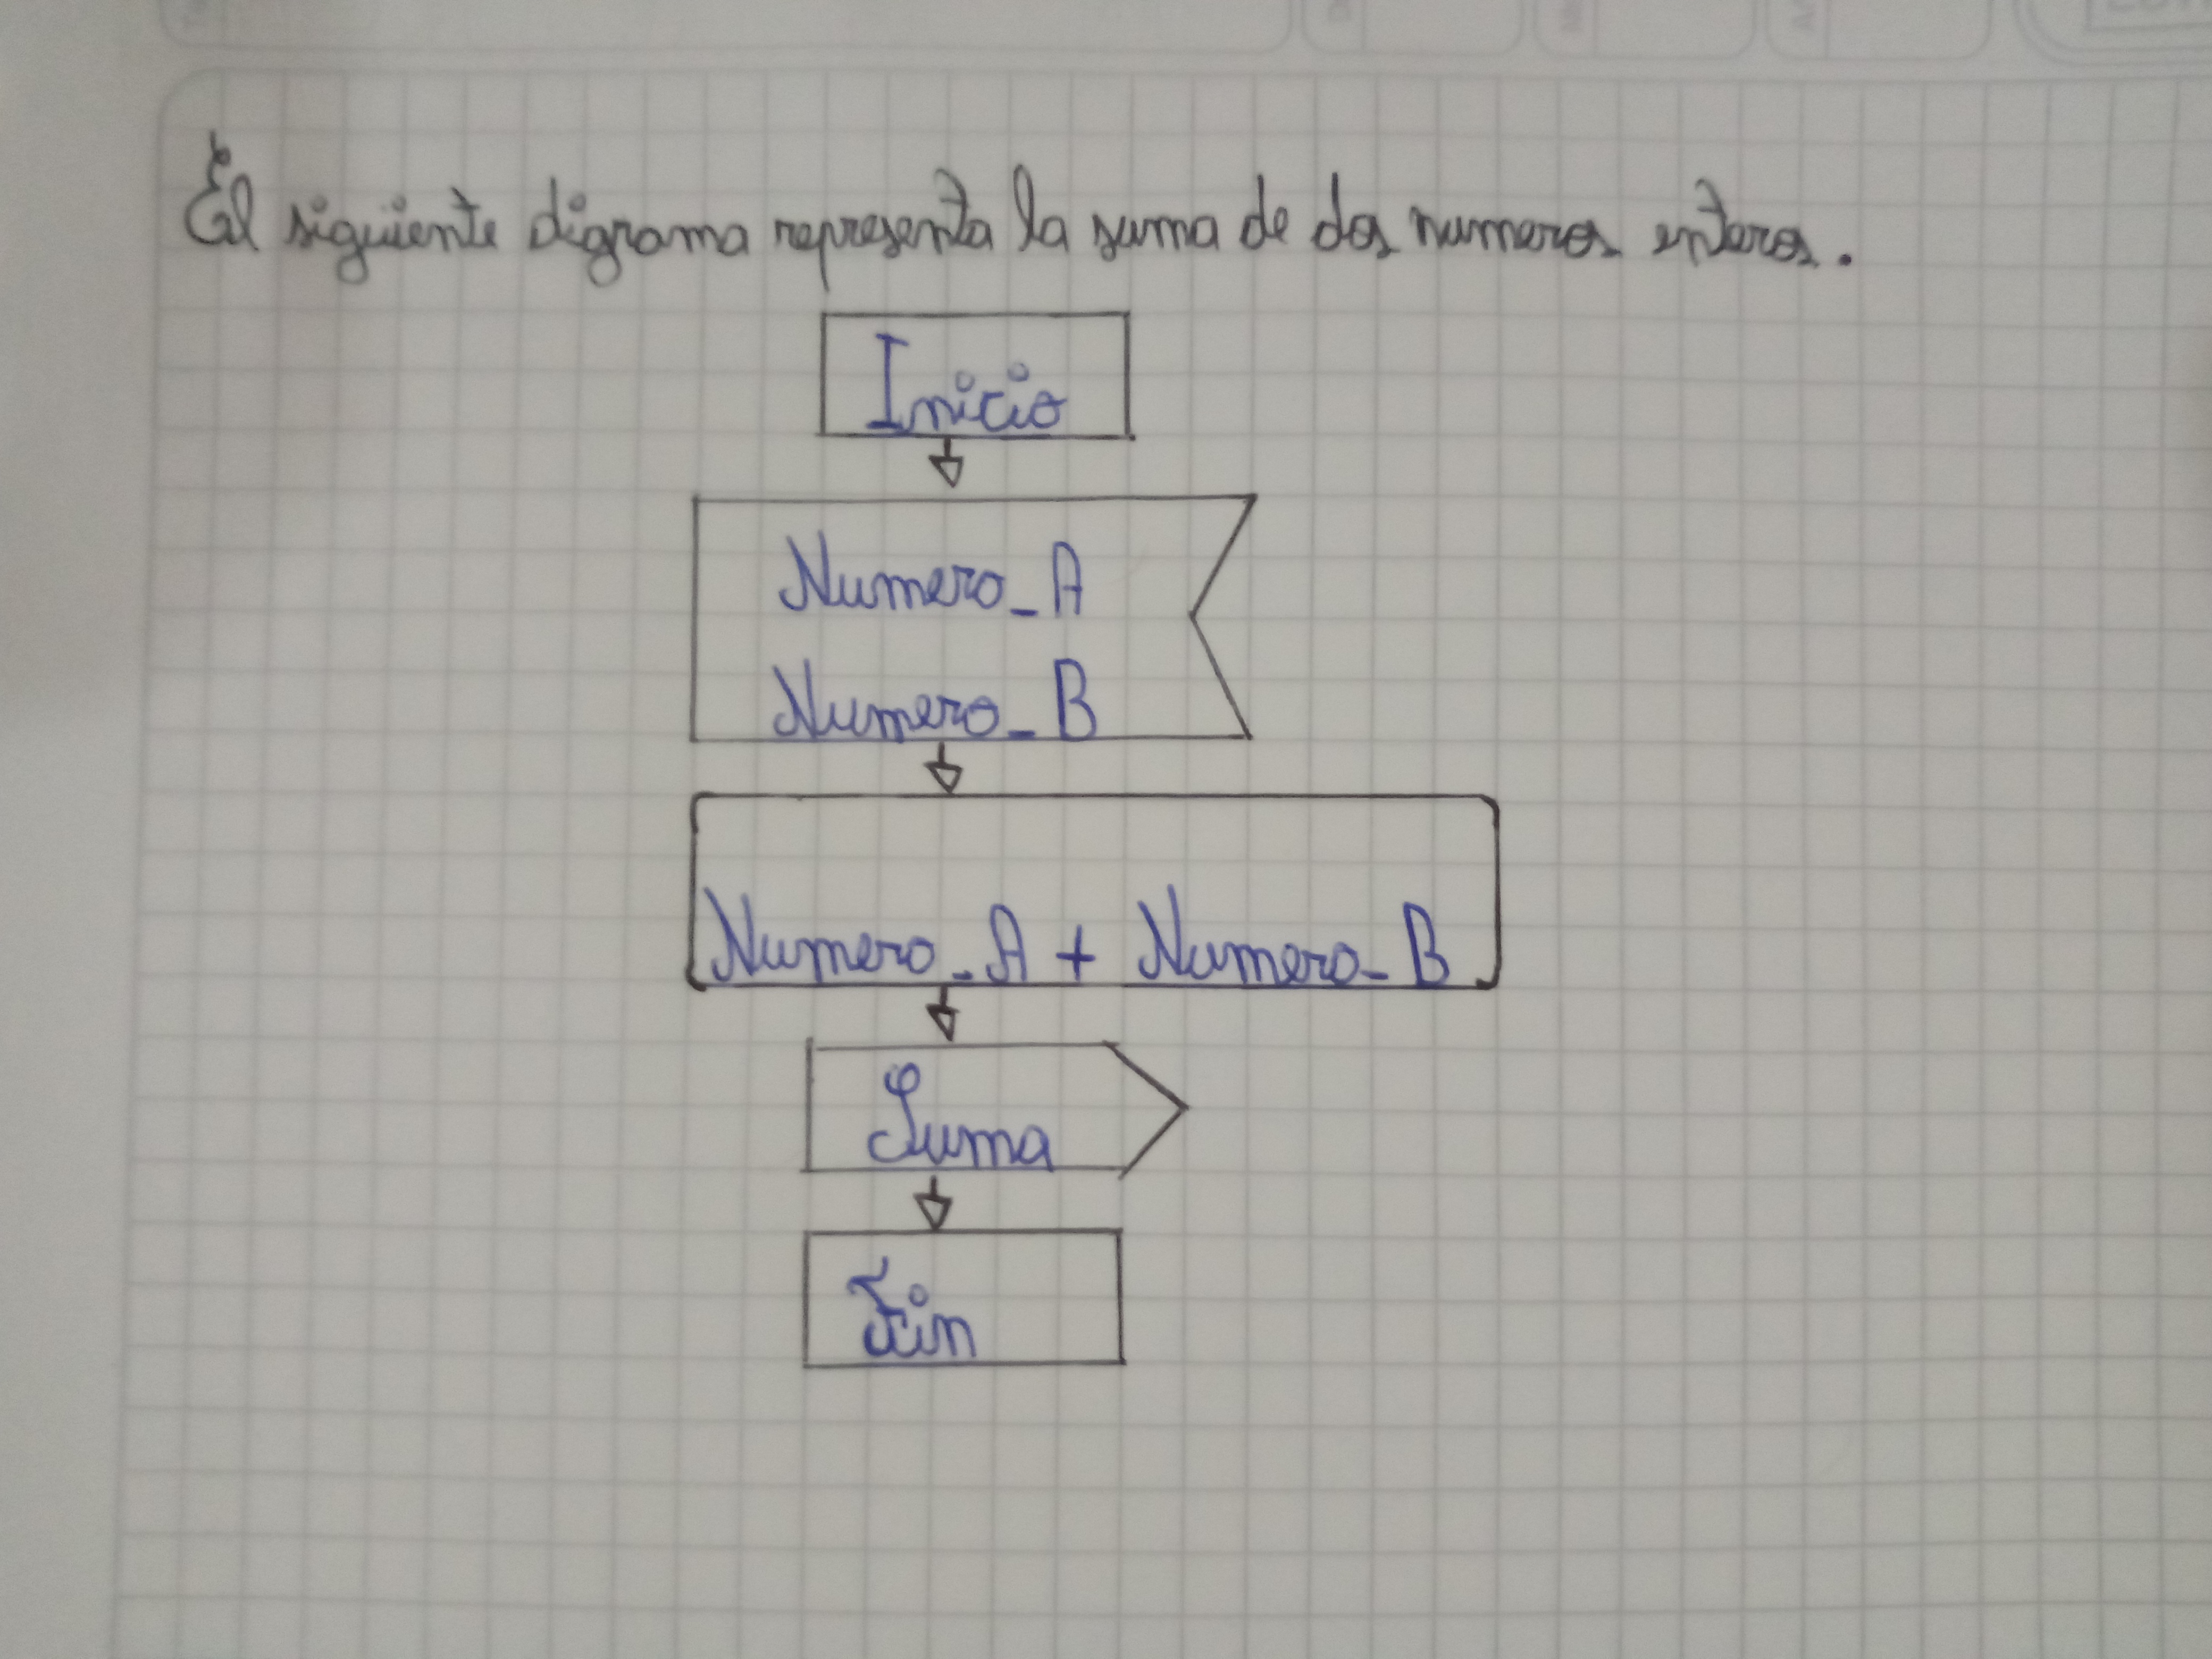 El siguiente digrama representa la suma de dos numeros enteros.
Inicio
Numero_A
Numero_B
Numero_A + Numero_B
Suma
Fin